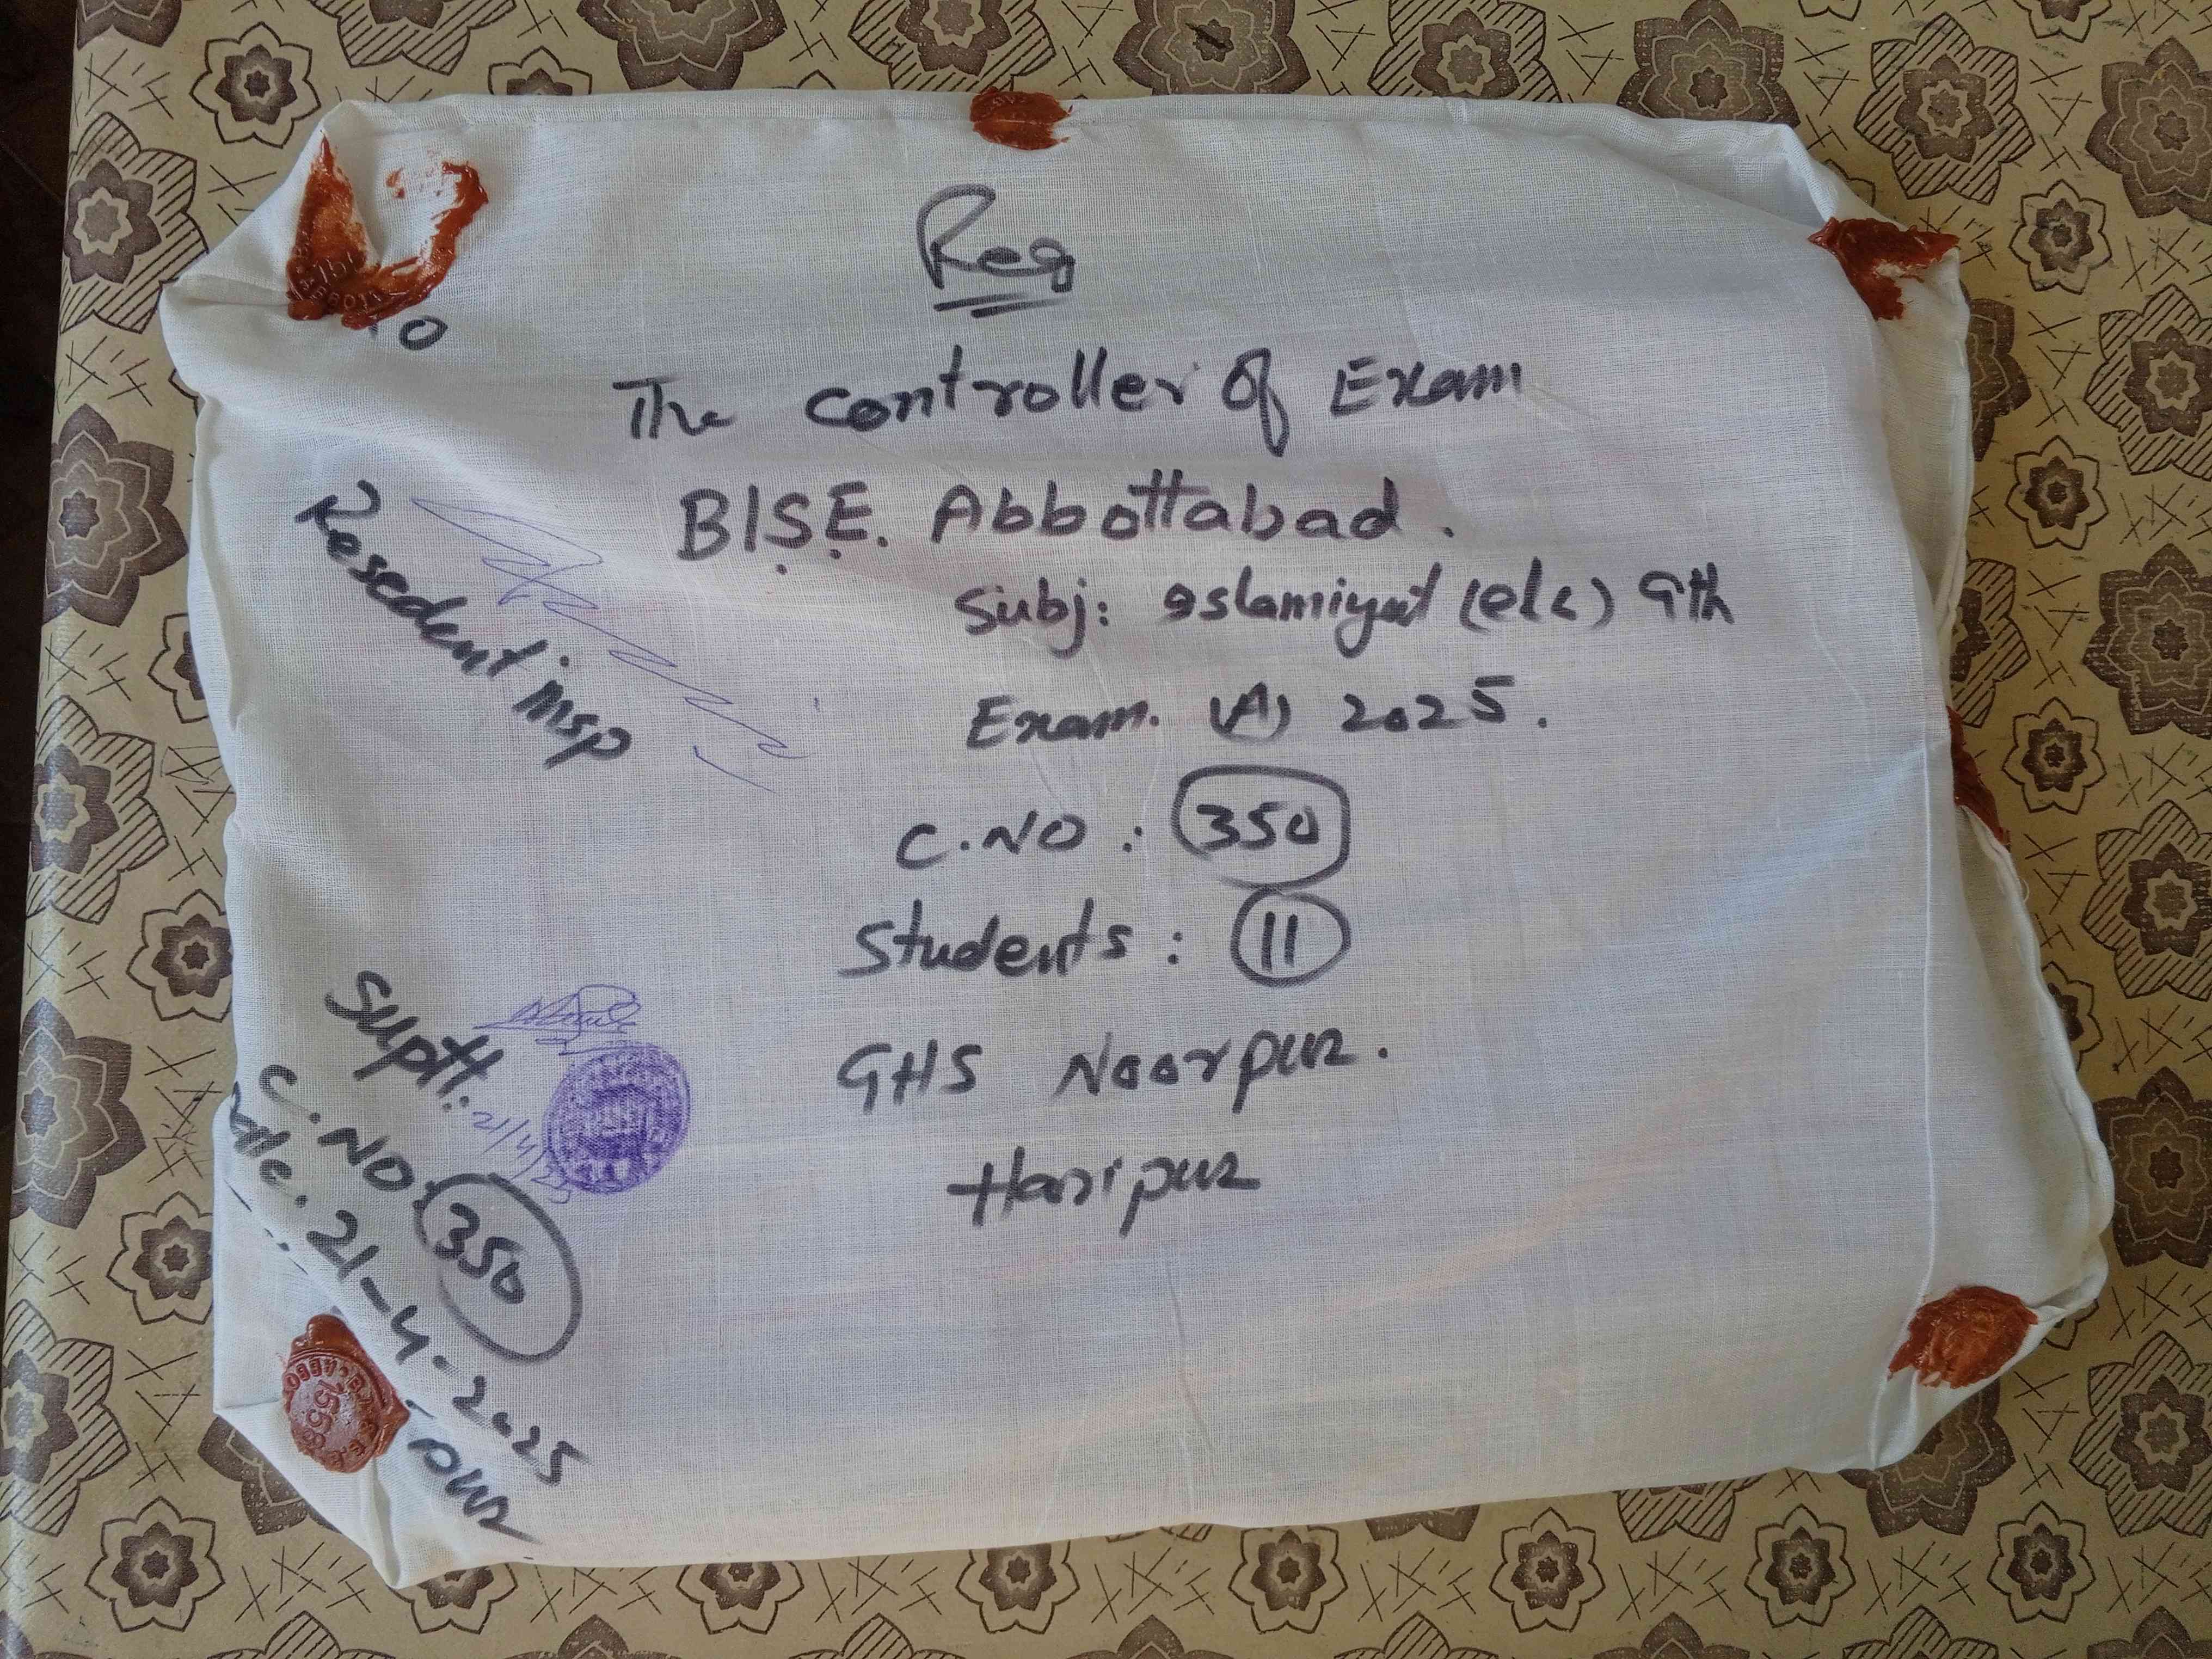 Reg
To
The controller of Exam
BISE. Abbottabad.
Subj: Islamiyat (elc) 9th
Exam. (A) 2025.
C.NO : 350
Students : 11
GHS Noorpur.
Haripur
Resedent insp
Suptt:
21/4/25
C.NO. 350
Date. 21-4-2025
pur
555